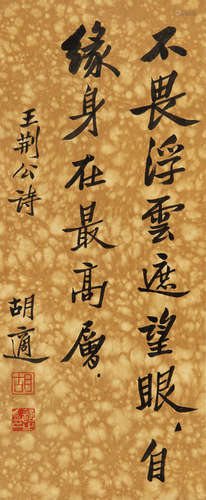 不畏浮雲遮望眼，自
緣身在最高層．
王荆公詩
胡適